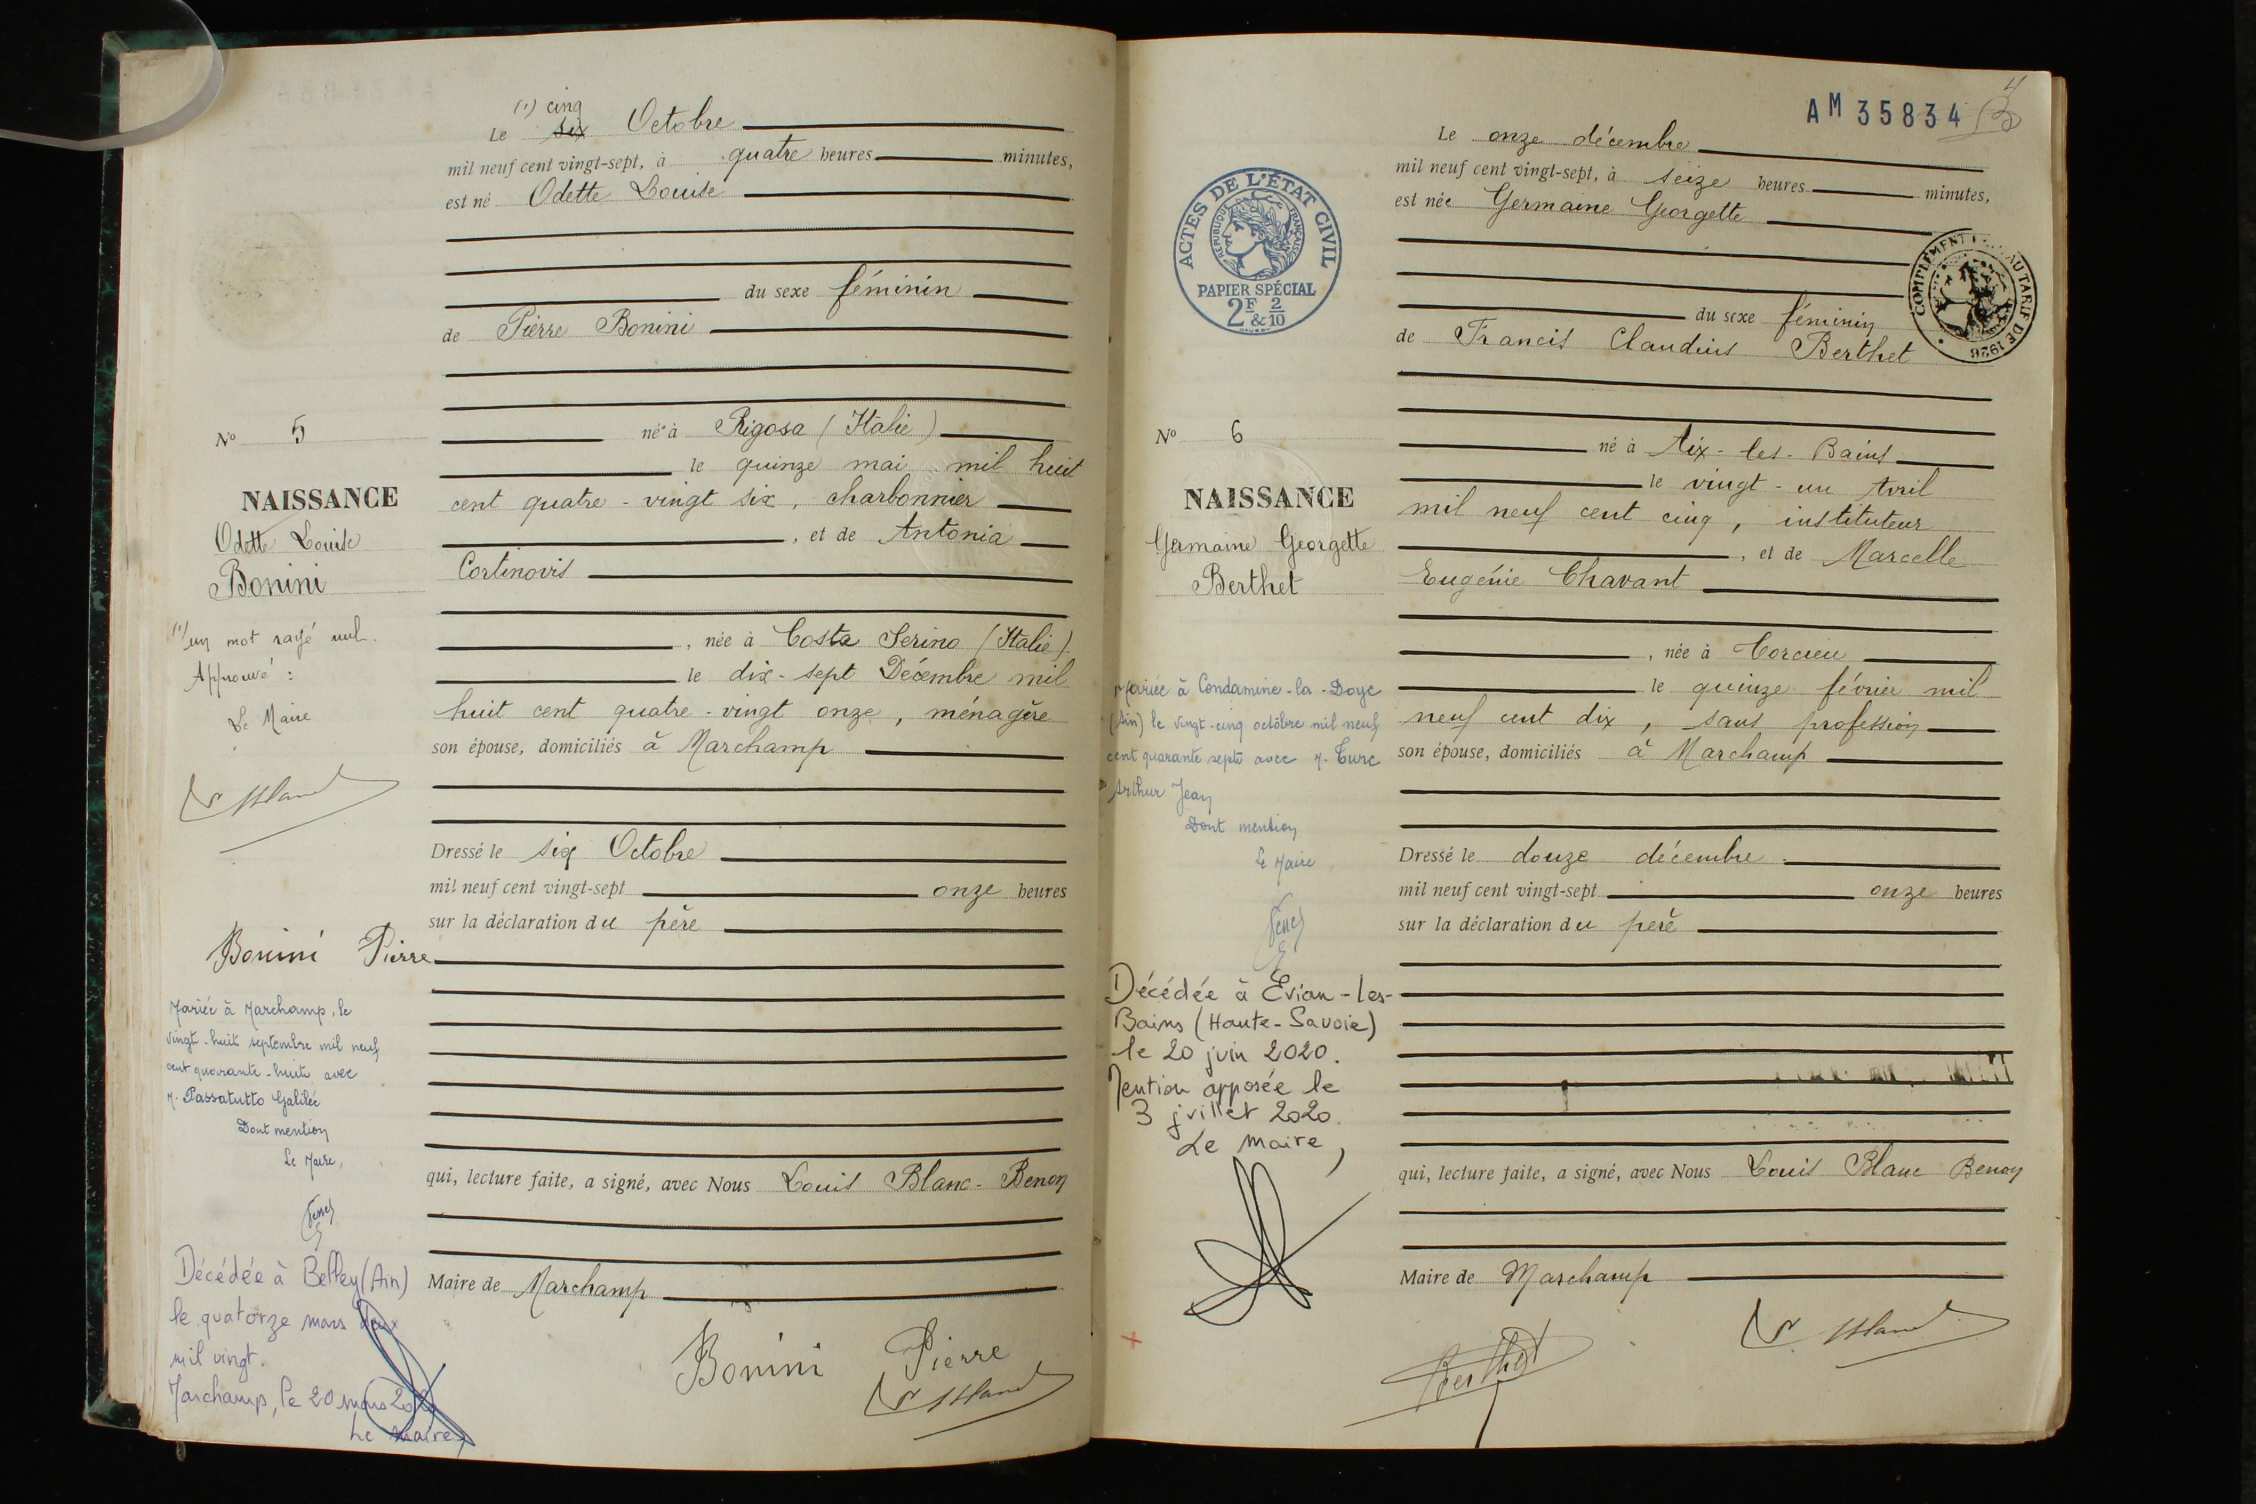 (1) cinq
Le six Octobre
mil neuf cent vingt-sept, à quatre heures minutes,
est né Odette Louise
du sexe féminin
de Pierre Bonini
né à Rigosa (Italie)
le quinze mai mil huit
cent quatre-vingt six, charbonnier
, et de Antonia
Cortinovis
, née à Costa Serino (Italie)
le dix-sept Décembre mil
huit cent quatre-vingt onze, ménagère
son épouse, domiciliés à Marchamp
Dressé le six Octobre
mil neuf cent vingt-sept onze heures
sur la déclaration du père
qui, lecture faite, a signé, avec Nous Louis Blanc-Benon
Maire de Marchamp
Bonini Pierre
No 5
NAISSANCE
Odette Louise
Bonini
(1) un mot rayé nul.
Approuvé :
Le Maire
Bonini Pierre
Mariée à Marchamp, le
vingt-huit septembre mil neuf
cent quarante-huit avec
M. Passatutto Galilée
Dont mention
Le Maire,
Décédée à Belley (Ain)
le quatorze mars deux
mil vingt.
Marchamp, le 20 mars 2020
Le maire,
AM 35834
Le onze décembre
mil neuf cent vingt-sept, à seize heures minutes,
est née Germaine Georgette
du sexe féminin
de Francis Claudius Berthet
né à Aix-les-Bains
le vingt-un Avril
mil neuf cent cinq, instituteur
, et de Marcelle
Eugénie Chavant
, née à Corcieu
le quinze février mil
neuf cent dix, sans profession
son épouse, domiciliés à Marchamp
Dressé le douze décembre
mil neuf cent vingt-sept onze heures
sur la déclaration du père
qui, lecture faite, a signé, avec Nous Louis Blanc Benon
Maire de Marchamp
Berthet
ACTES DE L'ÉTAT CIVIL
RÉPUBLIQUE FRANÇAISE
PAPIER SPÉCIAL
2F & 2/10
COMPLÉMENT AU TARIF DE 1926
No 6
NAISSANCE
Germaine Georgette
Berthet
Mariée à Condamine-la-Doye
(Ain) le vingt-cinq octobre mil neuf
cent quarante sept avec M. Turc
Arthur Jean
Dont mention
Le Maire
Décédée à Evian-les-
Bains (Haute-Savoie)
le 20 juin 2020.
Mention apposée le
3 juillet 2020.
Le maire,